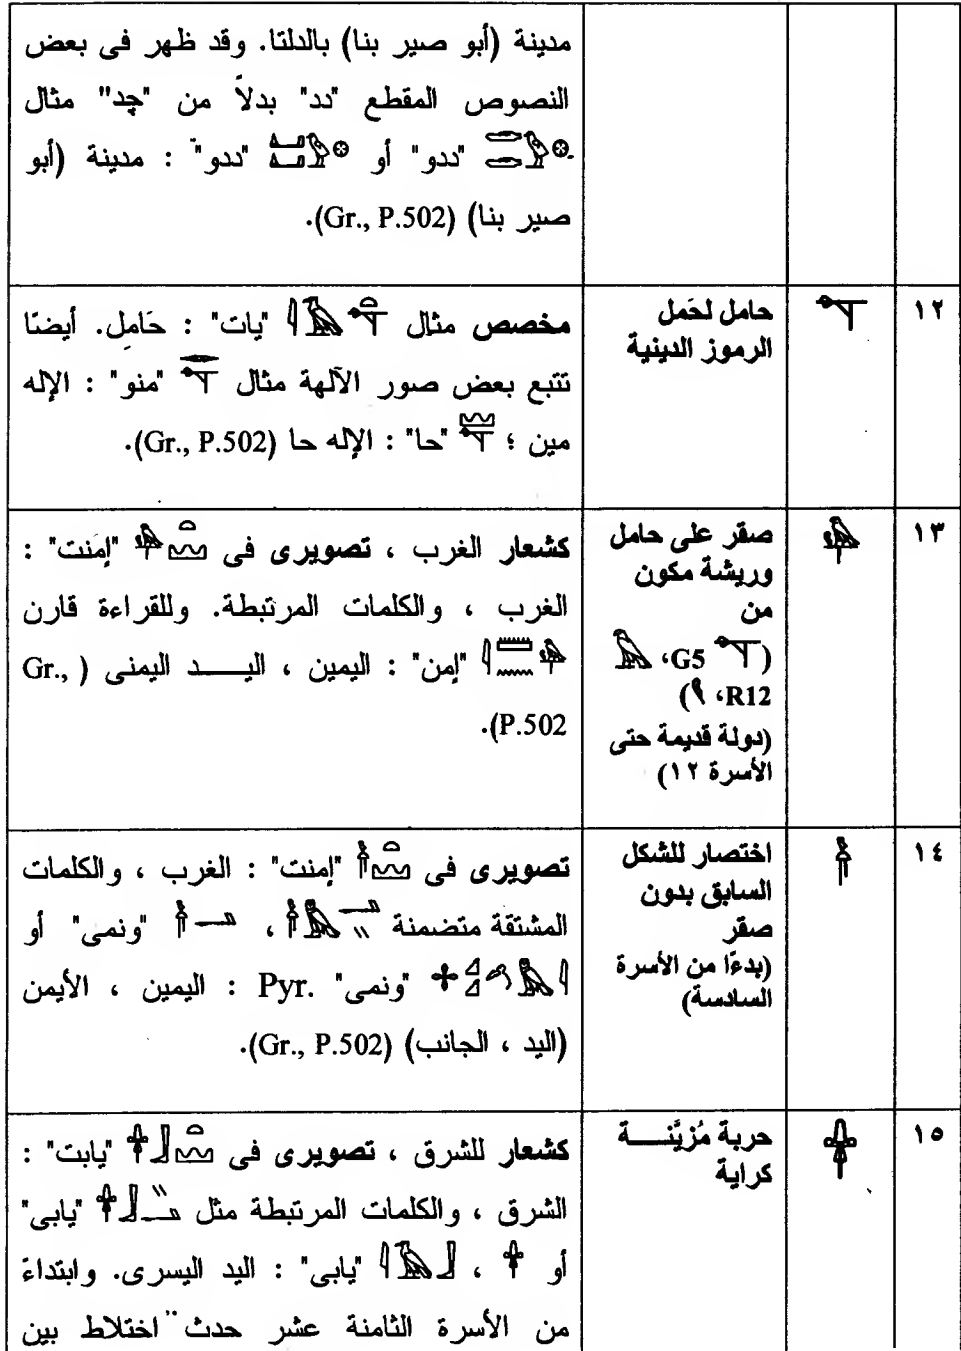 مدينة (أبو صير بنا) بالدلتا. وقد ظهر فى بعض
النصوص المقطع "دد" بدلاً من "چد" مثال
"ددو" أو "ددو" : مدينة (أبو
صير بنا) (Gr., P.502).
١٢
حامل لحَمل
الرموز الدينية
مخصص مثال "يات" : حَامِل. أيضًا
تتبع بعض صور الآلهة مثال "منو" : الإله
مين ؛ "حا" : الإله حا (Gr., P.502).
١٣
صقر على حامل
وريشة مكون
من
(G5،
R12، )
(دولة قديمة حتى
الأسرة ١٢)
كشعار الغرب ، تصويرى فى "إمَنت" :
الغرب ، والكلمات المرتبطة. وللقراءة قارن
"إمن" : اليمين ، اليـــد اليمنى (Gr.,
P.502).
١٤
اختصار للشكل
السابق بدون
صقر
(بدءًا من الأسرة
السادسة)
تصويرى فى "إمنت" : الغرب ، والكلمات
المشتقة متضمنة ، "ونمى" أو
"ونمى" Pyr. : اليمين ، الأيمن
(اليد ، الجانب) (Gr., P.502).
١٥
حربة مُزيَّنـــة
كراية
كشعار للشرق ، تصويرى فى "يابت" :
الشرق ، والكلمات المرتبطة مثل "يابى"
أو ، "يابى" : اليد اليسرى. وابتداءً
من الأسرة الثامنة عشر حدث اختلاط بين